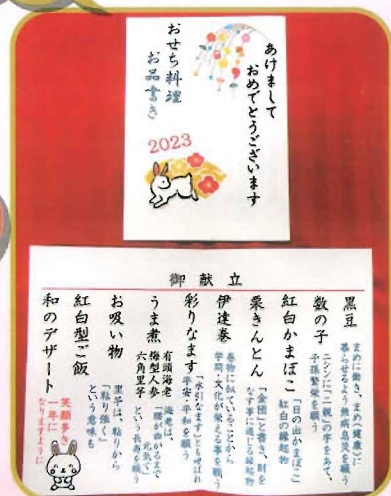 あけまして
おめでとうございます
おせち料理
お品書き
2023
御献立
黒豆
まめに働き、まめ(健康)に
暮らせるよう無病息災を願う
数の子
ニシンに「二親」の字をあて、
子孫繁栄を願う
紅白かまぼこ
「日の出かまぼこ」
紅白の縁起物
栗きんとん
「金団」と書き、財を
なす事に通じる縁起物
伊達巻
巻物に似ていることから
学問・文化が栄える事を願う
彩りなます
「水引なます」とも呼ばれ
平安・平和を願う
うま煮
有頭海老
梅型人参
六角里芋
海老は、
「腰が曲がるまで
元気で」
という長寿を願う
お吸い物
里芋は、粘りから
「粘り強く」
という意味も
紅白型ご飯
和のデザート
笑顔多き
一年に
なりますように